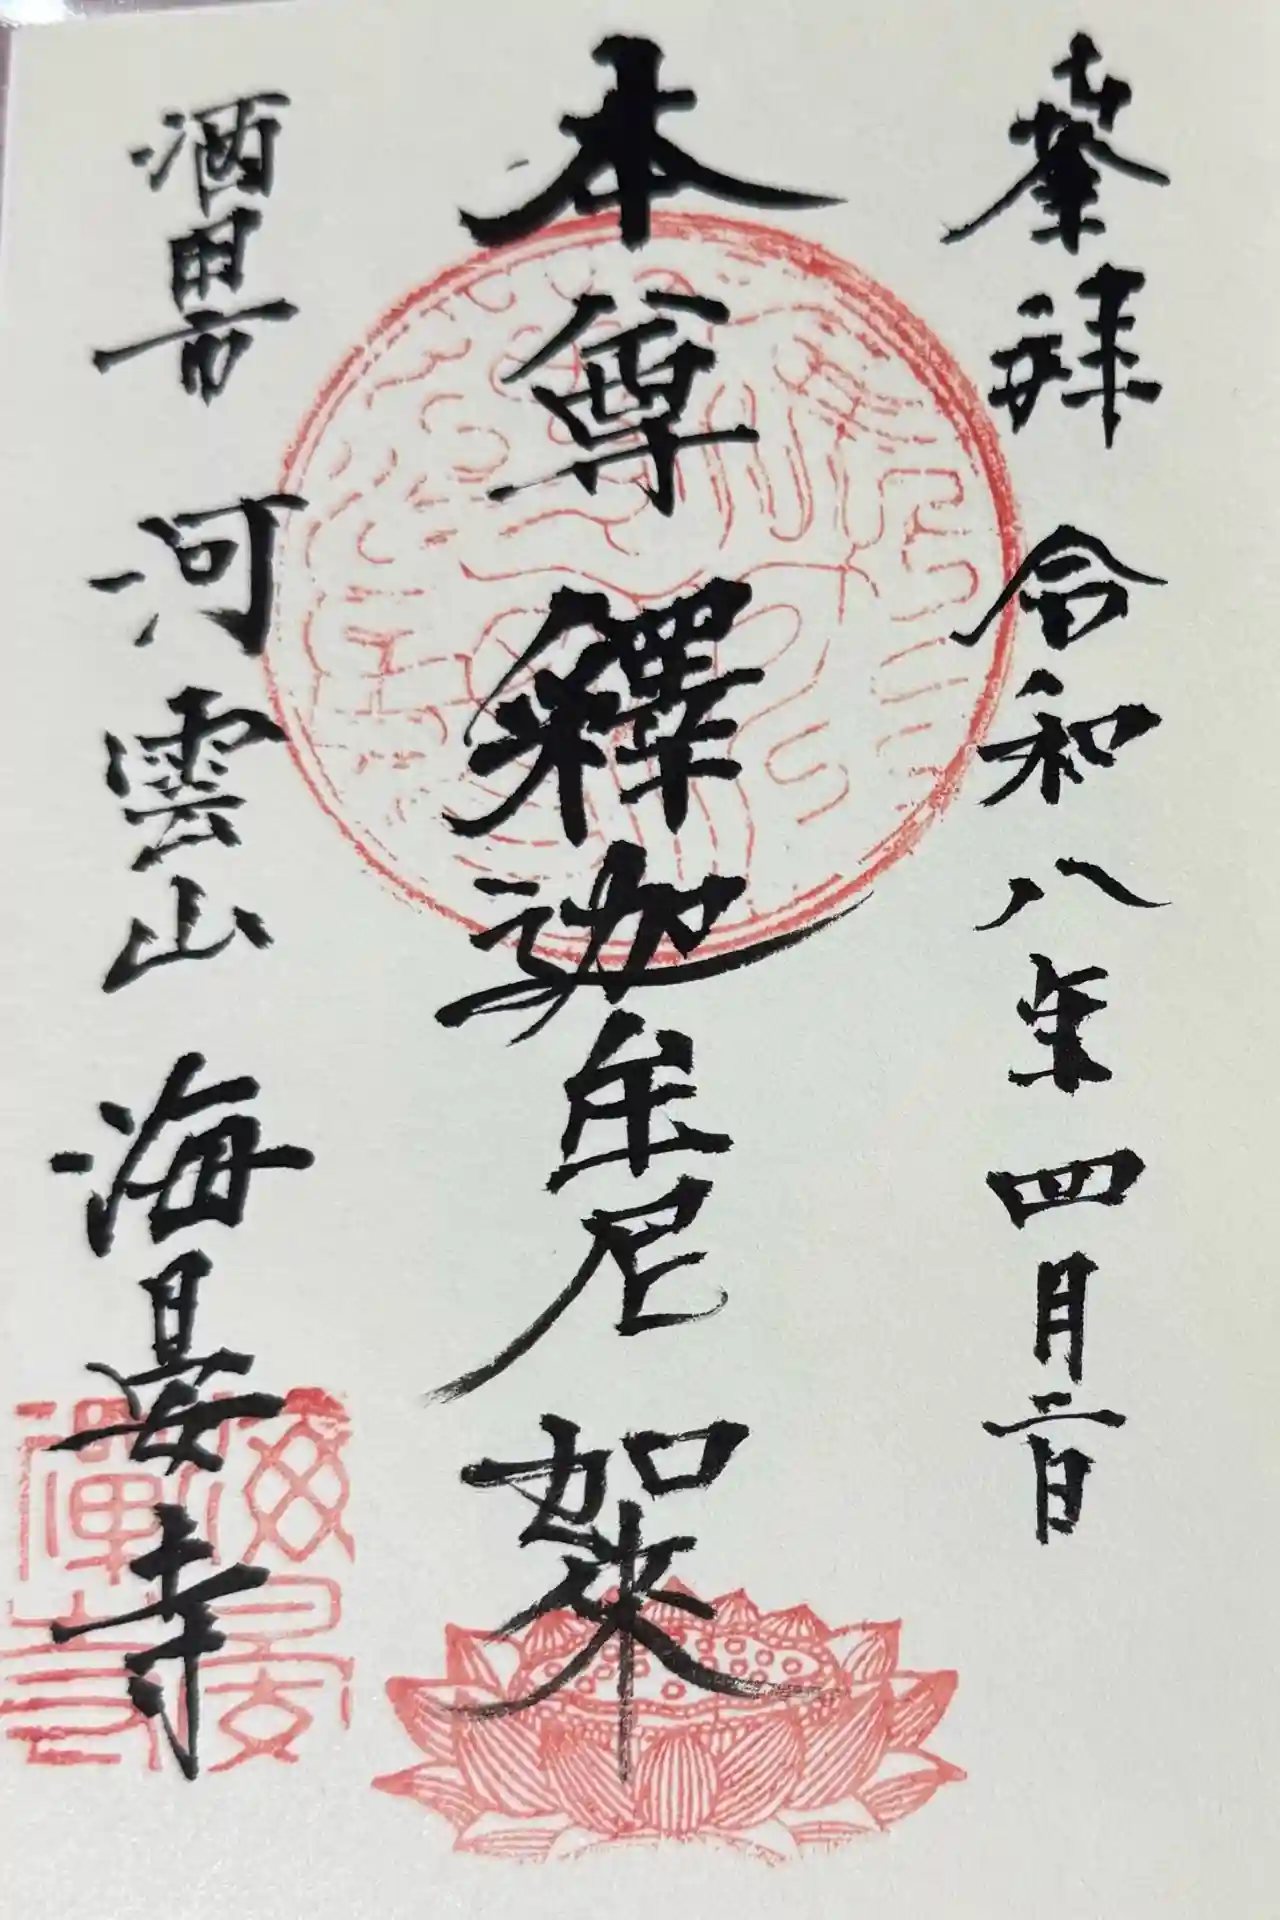 奉拜 令和八年四月二日
本尊 釋迦牟尼如來
酒田市 河雲山 海晏寺
海晏
禪寺